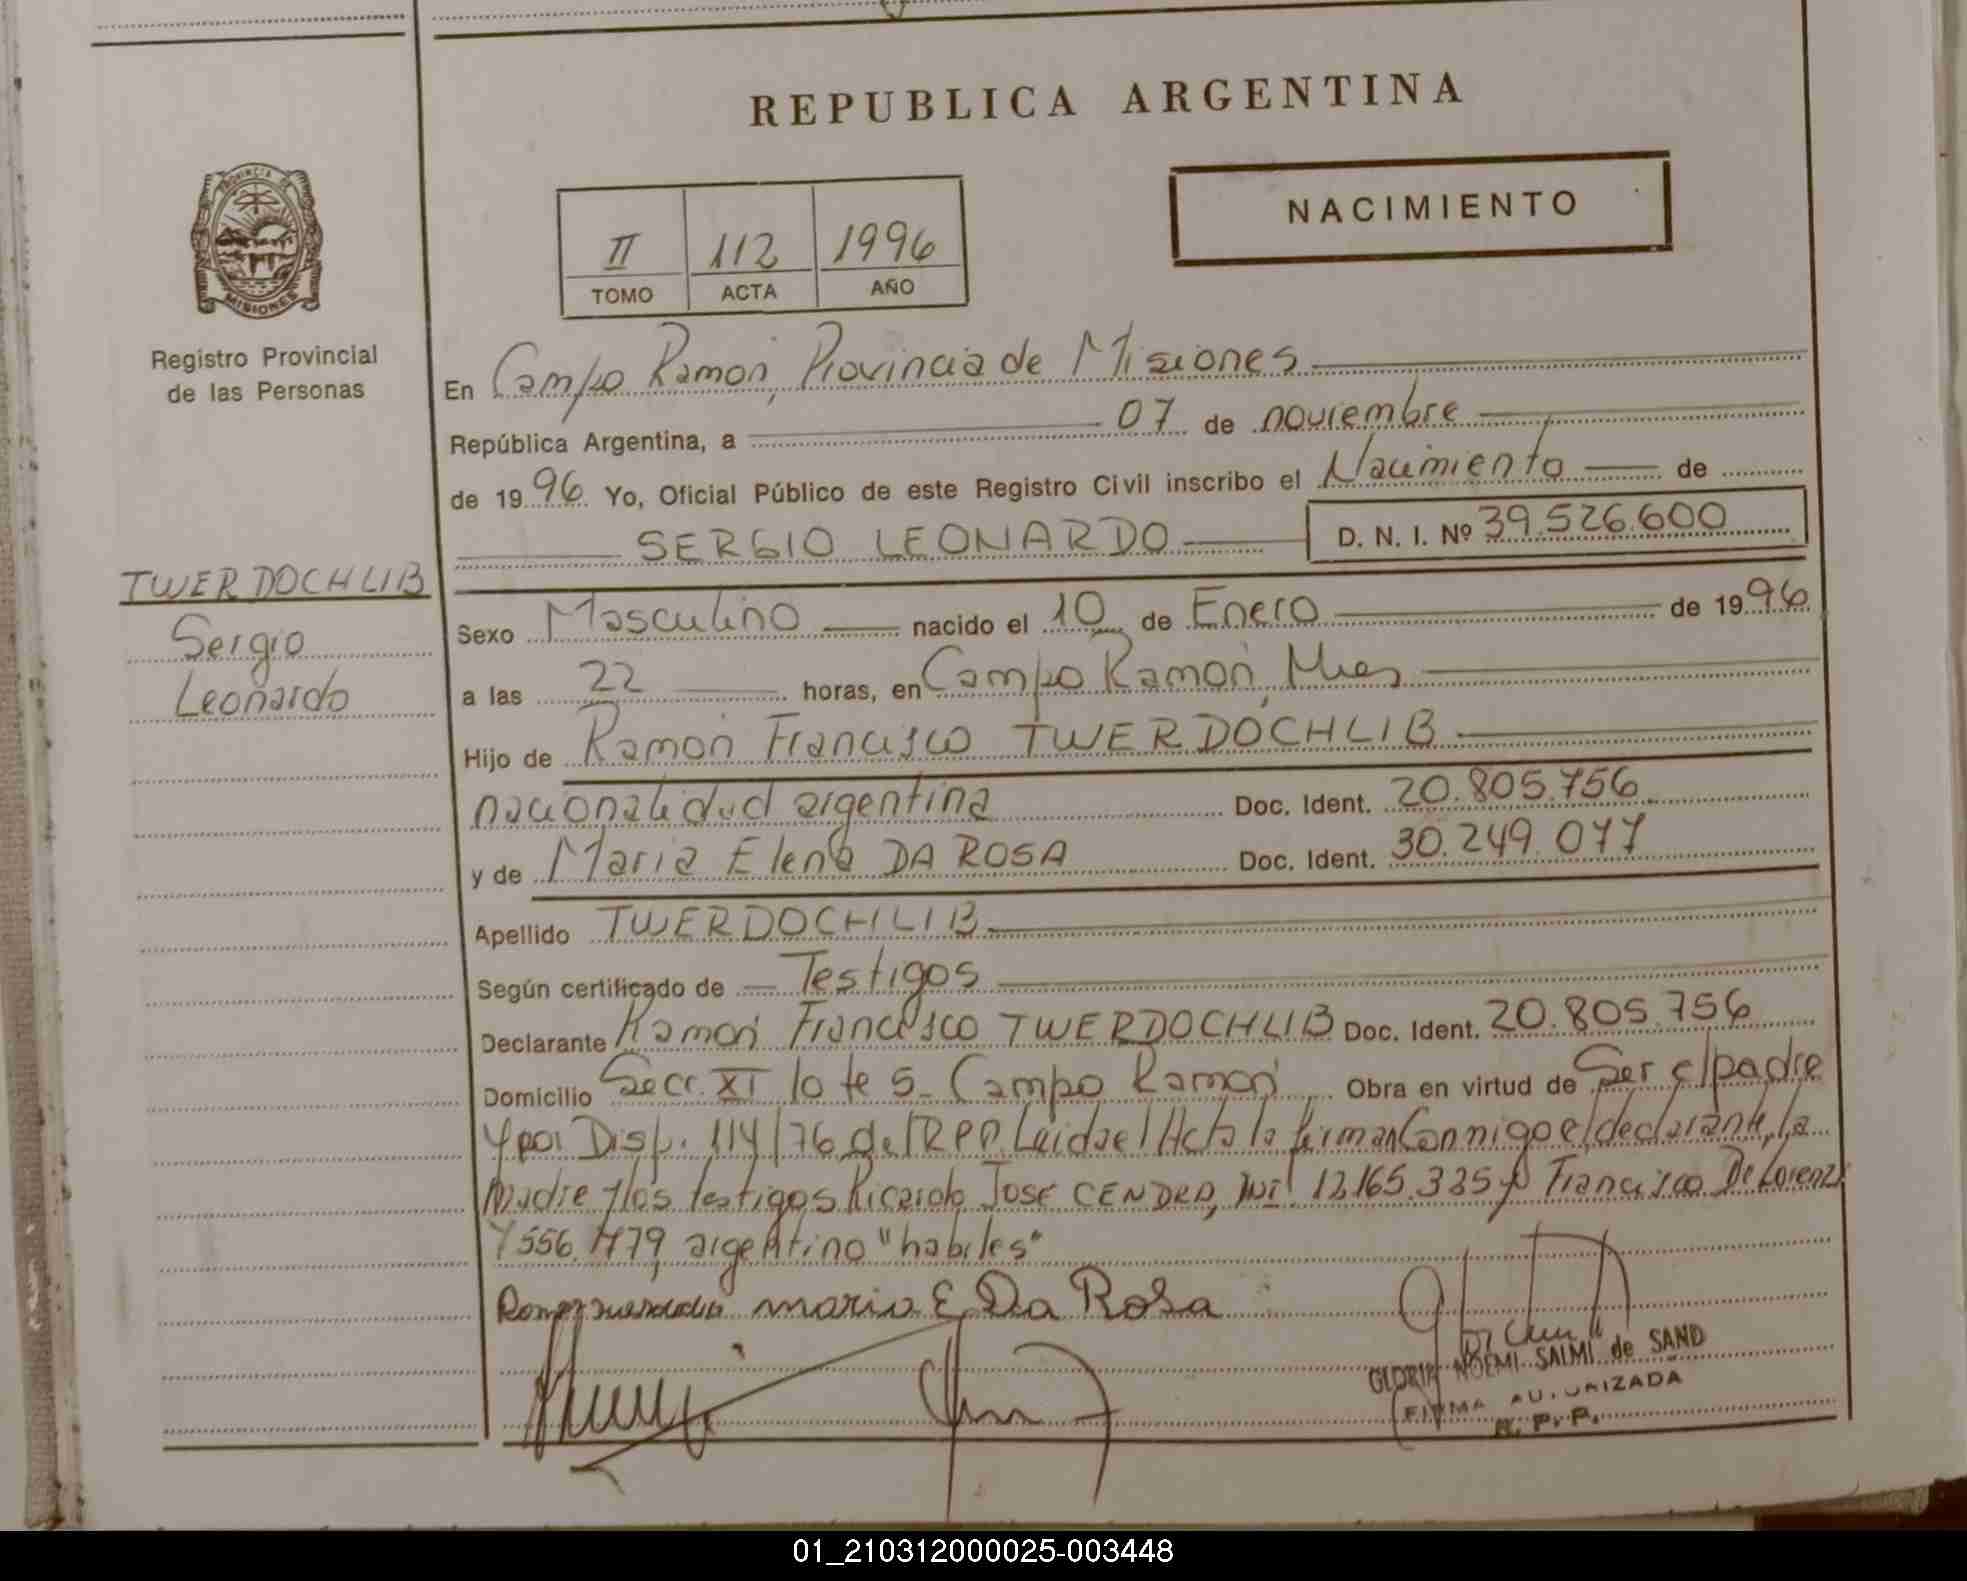 REPUBLICA ARGENTINA
NACIMIENTO
II 112 1996
TOMO ACTA AÑO
PROVINCIA DE
MISIONES
Registro Provincial
de las Personas
TWERDOCHLIB
Sergio
Leonardo
En Campo Ramón, Provincia de Misiones
República Argentina, a 07 de noviembre
de 1996 Yo, Oficial Público de este Registro Civil inscribo el Nacimiento de
SERGIO LEONARDO D. N. I. Nº 39.526.600
Sexo Masculino nacido el 10 de Enero de 1996
a las 22 horas, en Campo Ramón, Mnes
Hijo de Ramón Francisco TWERDOCHLIB
nacionalidad argentina Doc. Ident. 20.805.756
y de Maria Elena DA ROSA Doc. Ident. 30.249.077
Apellido TWERDOCHLIB
Según certificado de Testigos
Declarante Ramón Francisco TWERDOCHLIB Doc. Ident. 20.805.756
Domicilio Secc. XI lote 5 - Campo Ramón Obra en virtud de Ser el padre
y por Disp. 114/76 del RPP. Leida el Acta la firman Conmigo el declarante, la
Madre y los testigos Ricardo José 12.165.335 y Francisco De Lorenzi
7556.479, argentino "habiles"
maria E Da Rosa
GLORIA NOEMI SALMI de SAND
FIRMA AUTORIZADA
R. P. P.
01_210312000025-003448